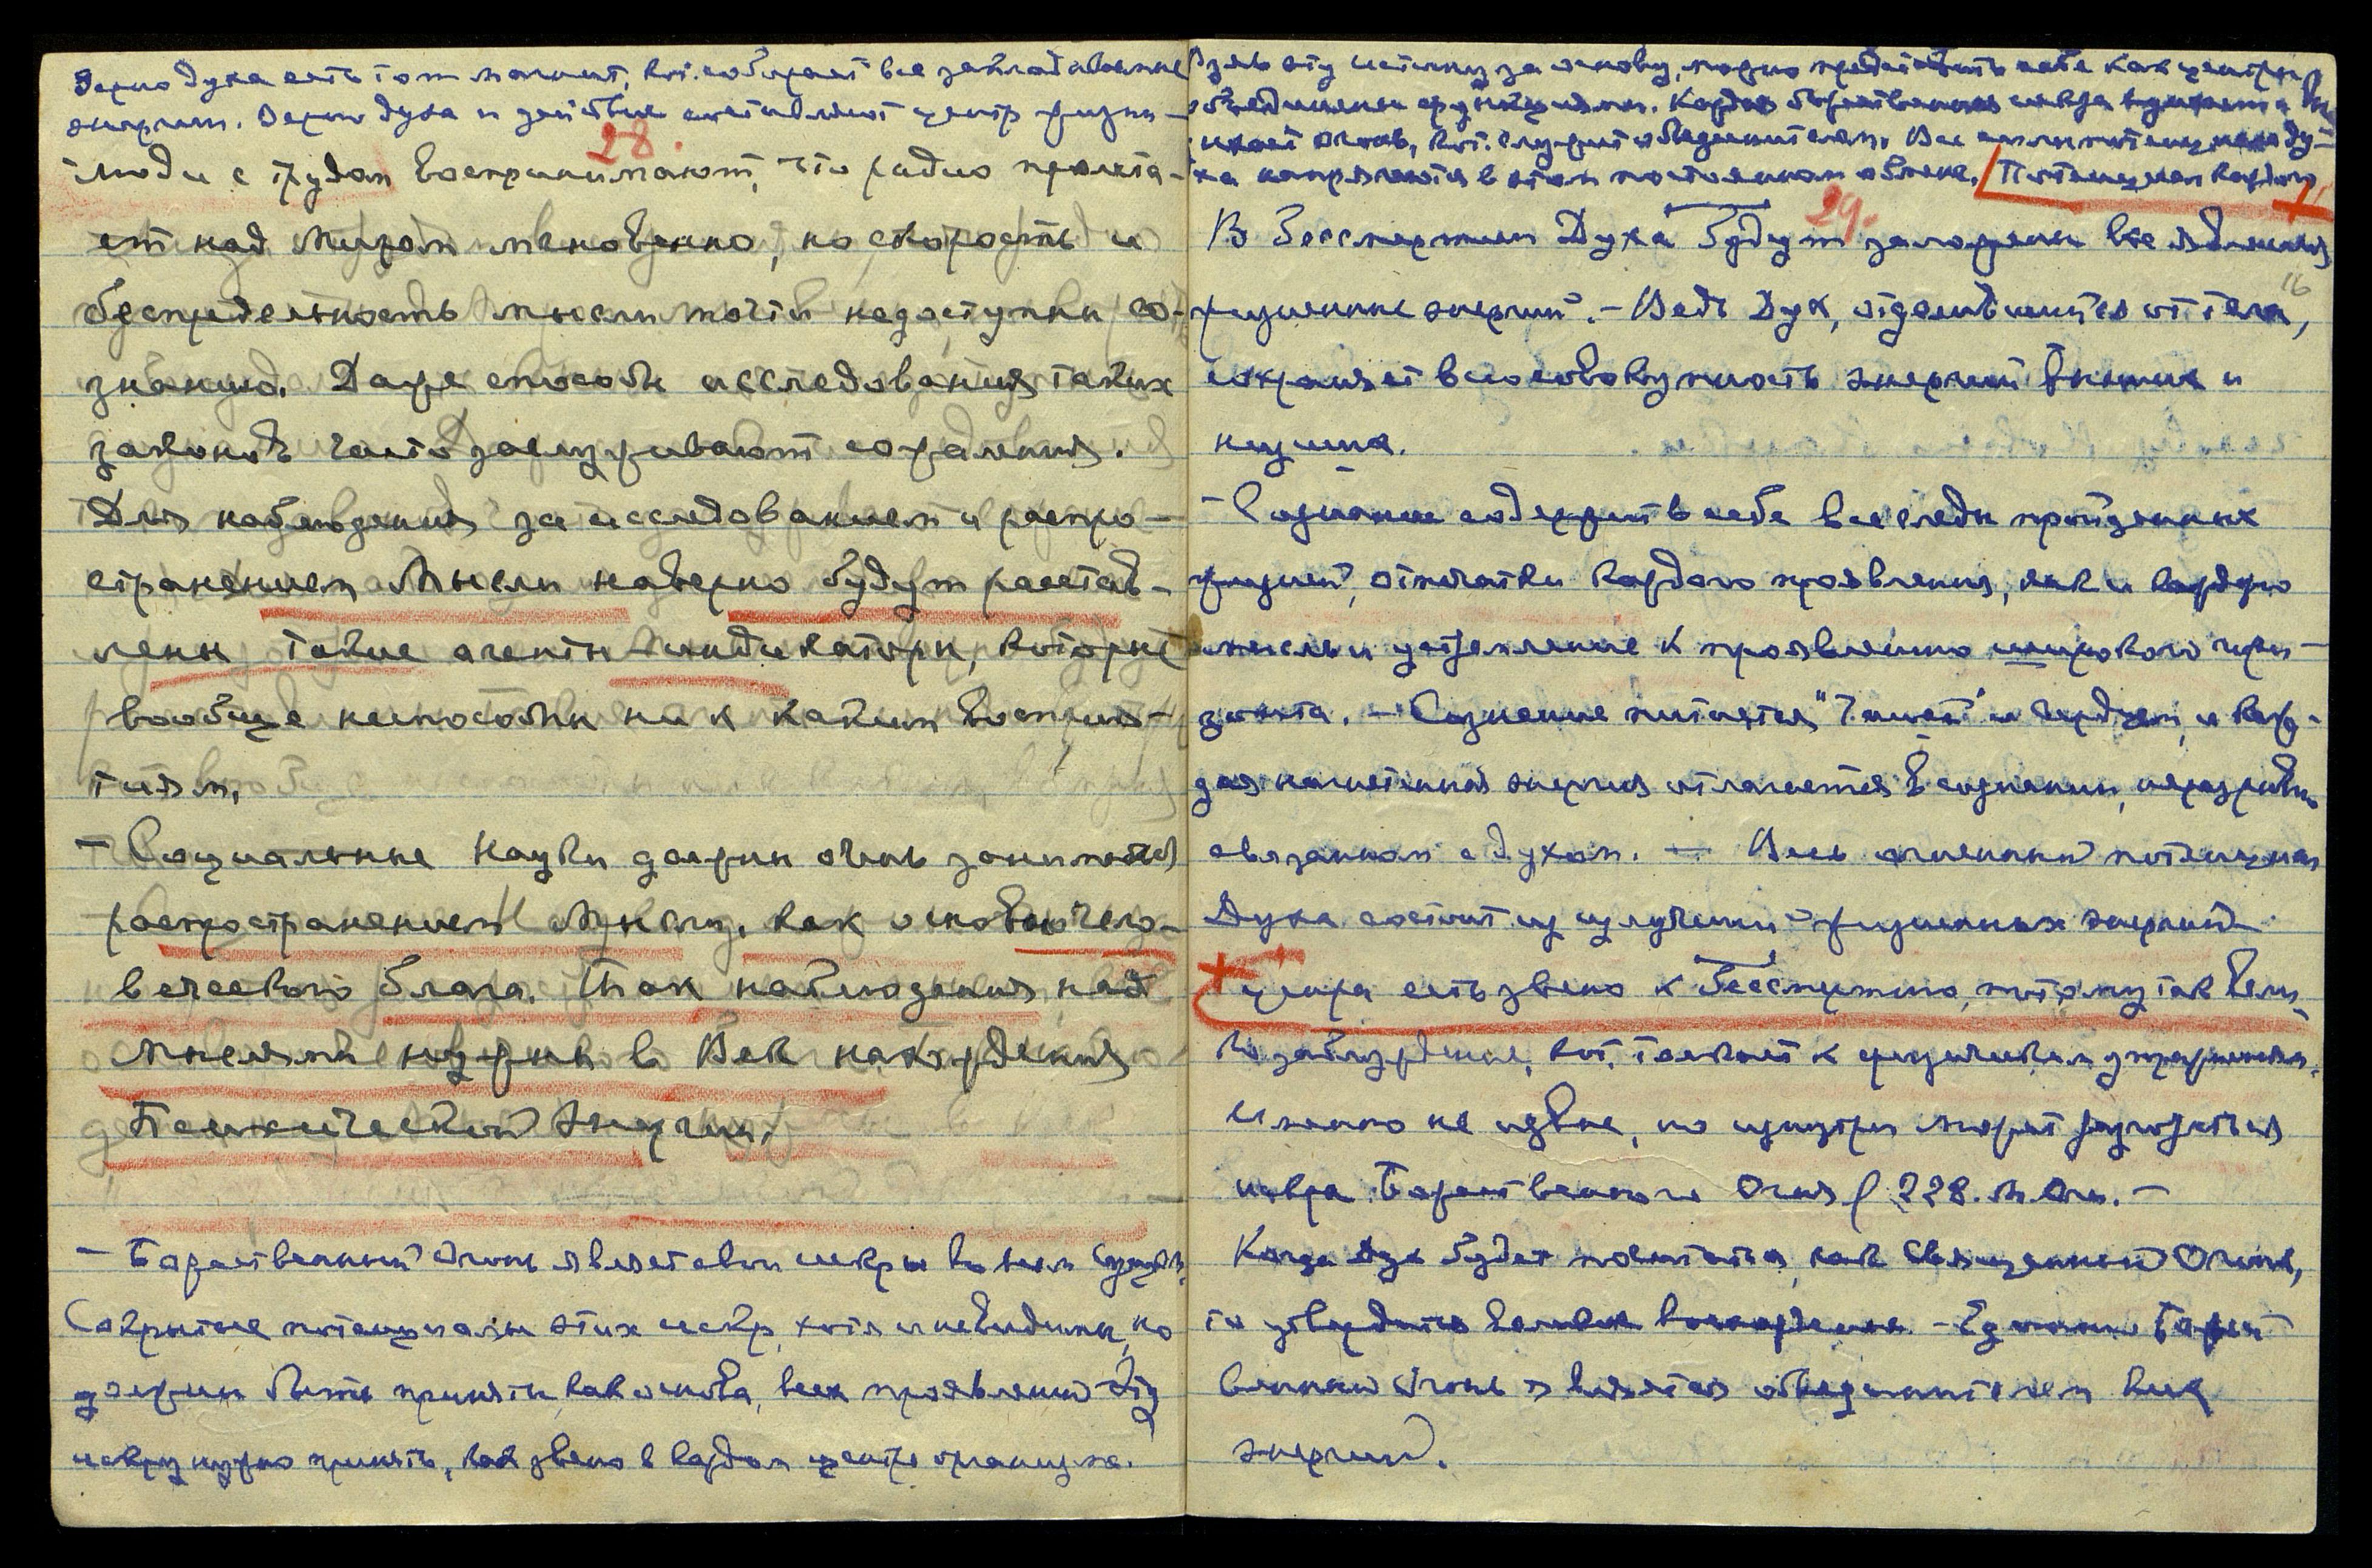 Зерно духа есть тот магнит, кот. собирает все закладываемые
энергии. Зерно духа и действие составляют центр жизни —
28.
Люди с трудом воспринимают, что радио пролета-
ет над Миром мгновенно, но скорость и
беспредельность мысли почти недоступны со-
знанию. Даже способы исследования таких
законов часто заслуживают сожаления.
Для наблюдения за исследованием и распро-
странением Мысли наверно будут расстав-
лены такие агенты индикаторы, которые
вообще неспособны ни к каким восприя-
тиям.
— Социальные Науки должны очень заниматься
распространением Мысли, как основою чело-
веческого блага. Так наблюдения над
мыслями нужны в Век нахождения
Психической Энергии.
— Божественный Огонь являет свои искры во всем Сущем.
Сокрытые потенциалы этих искр, хотя и невидимы, но
должны быть приняты, как основа, всех проявлений. Эту
искру нужно принять, как звено в каждом центре организма.
Взяв эту истину за основу, можно представить себе как центры
объединены функциями. Каждая божественная искра
огонь, кот. служит объединителем. Все потенциалы ду-
ха напрягаются в этом постоянном обмене. Потенциал каждого
29.
В Бессмертии Духа будут заложены все явления
16
жизненные энергий. — Ведь Дух, отделившийся от тела,
сохраняет всю совокупность энергий высших и
низших.
— Сознание содержит в себе все следы пройденных
жизней, отпечатки каждого проявления, как и каждую
мысль и устремление к проявлению широкого гори-
зонта. — Сознание питается "Чашей" и Сердцем, и каж-
дая нагнетённая энергия отлагается в сознании, неразрывно
связанном с духом. — Весь огненный потенциал
Духа состоит из излучений жизненных энергий
центра есть звено к Бессмертию, потому так вели-
ко заблуждение, кот. толкает к физическим упражнениям.
Именно не извне, но изнутри может разгораться
искра Божественного Огня (228. М.Огн. —
Когда Дух будет поситаться, как Священный Огонь,
то утвердится великое восхождение. — Единый Божест-
венный Огонь является объединителем всех
энергий.